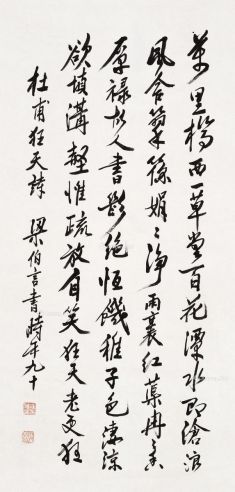 萬里橋西一草堂百花潭水即滄浪
風含翠篠娟〻淨雨裛紅蕖冉冉香
厚祿故人書斷絕恒饑稚子色淒涼
欲填溝壑惟疏放自笑狂夫老更狂
杜甫狂夫詩 梁伯言書時年九十